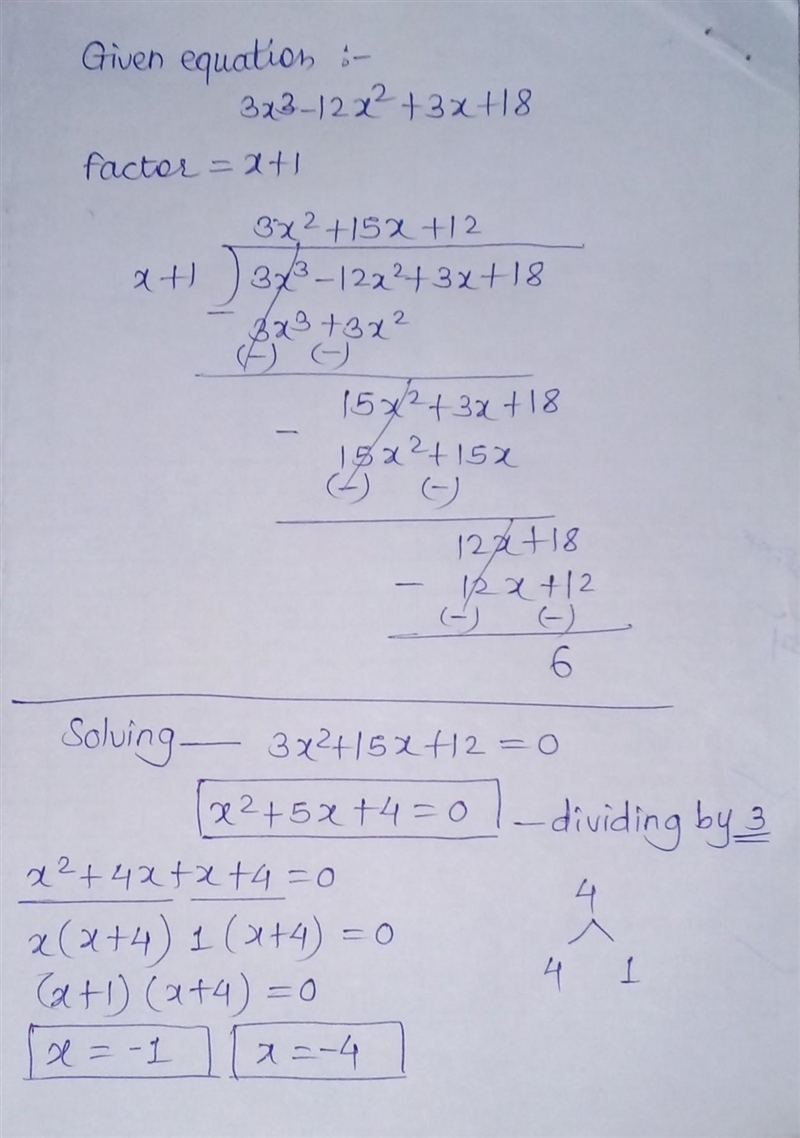 Given equation :-
3x³-12x²+3x+18
factor = x+1
3x²+15x+12
x+1 ) 3x³-12x²+3x+18
- 3x³+3x²
(-) (-)
15x²+3x+18
- 15x²+15x
(-) (-)
12x+18
- 12x+12
(-) (-)
6
Solving — 3x²+15x+12=0
x²+5x+4=0 - dividing by 3
x²+4x+x+4=0
x(x+4) 1(x+4)=0
(x+1)(x+4)=0
x=-1 x=-4
4
4 1